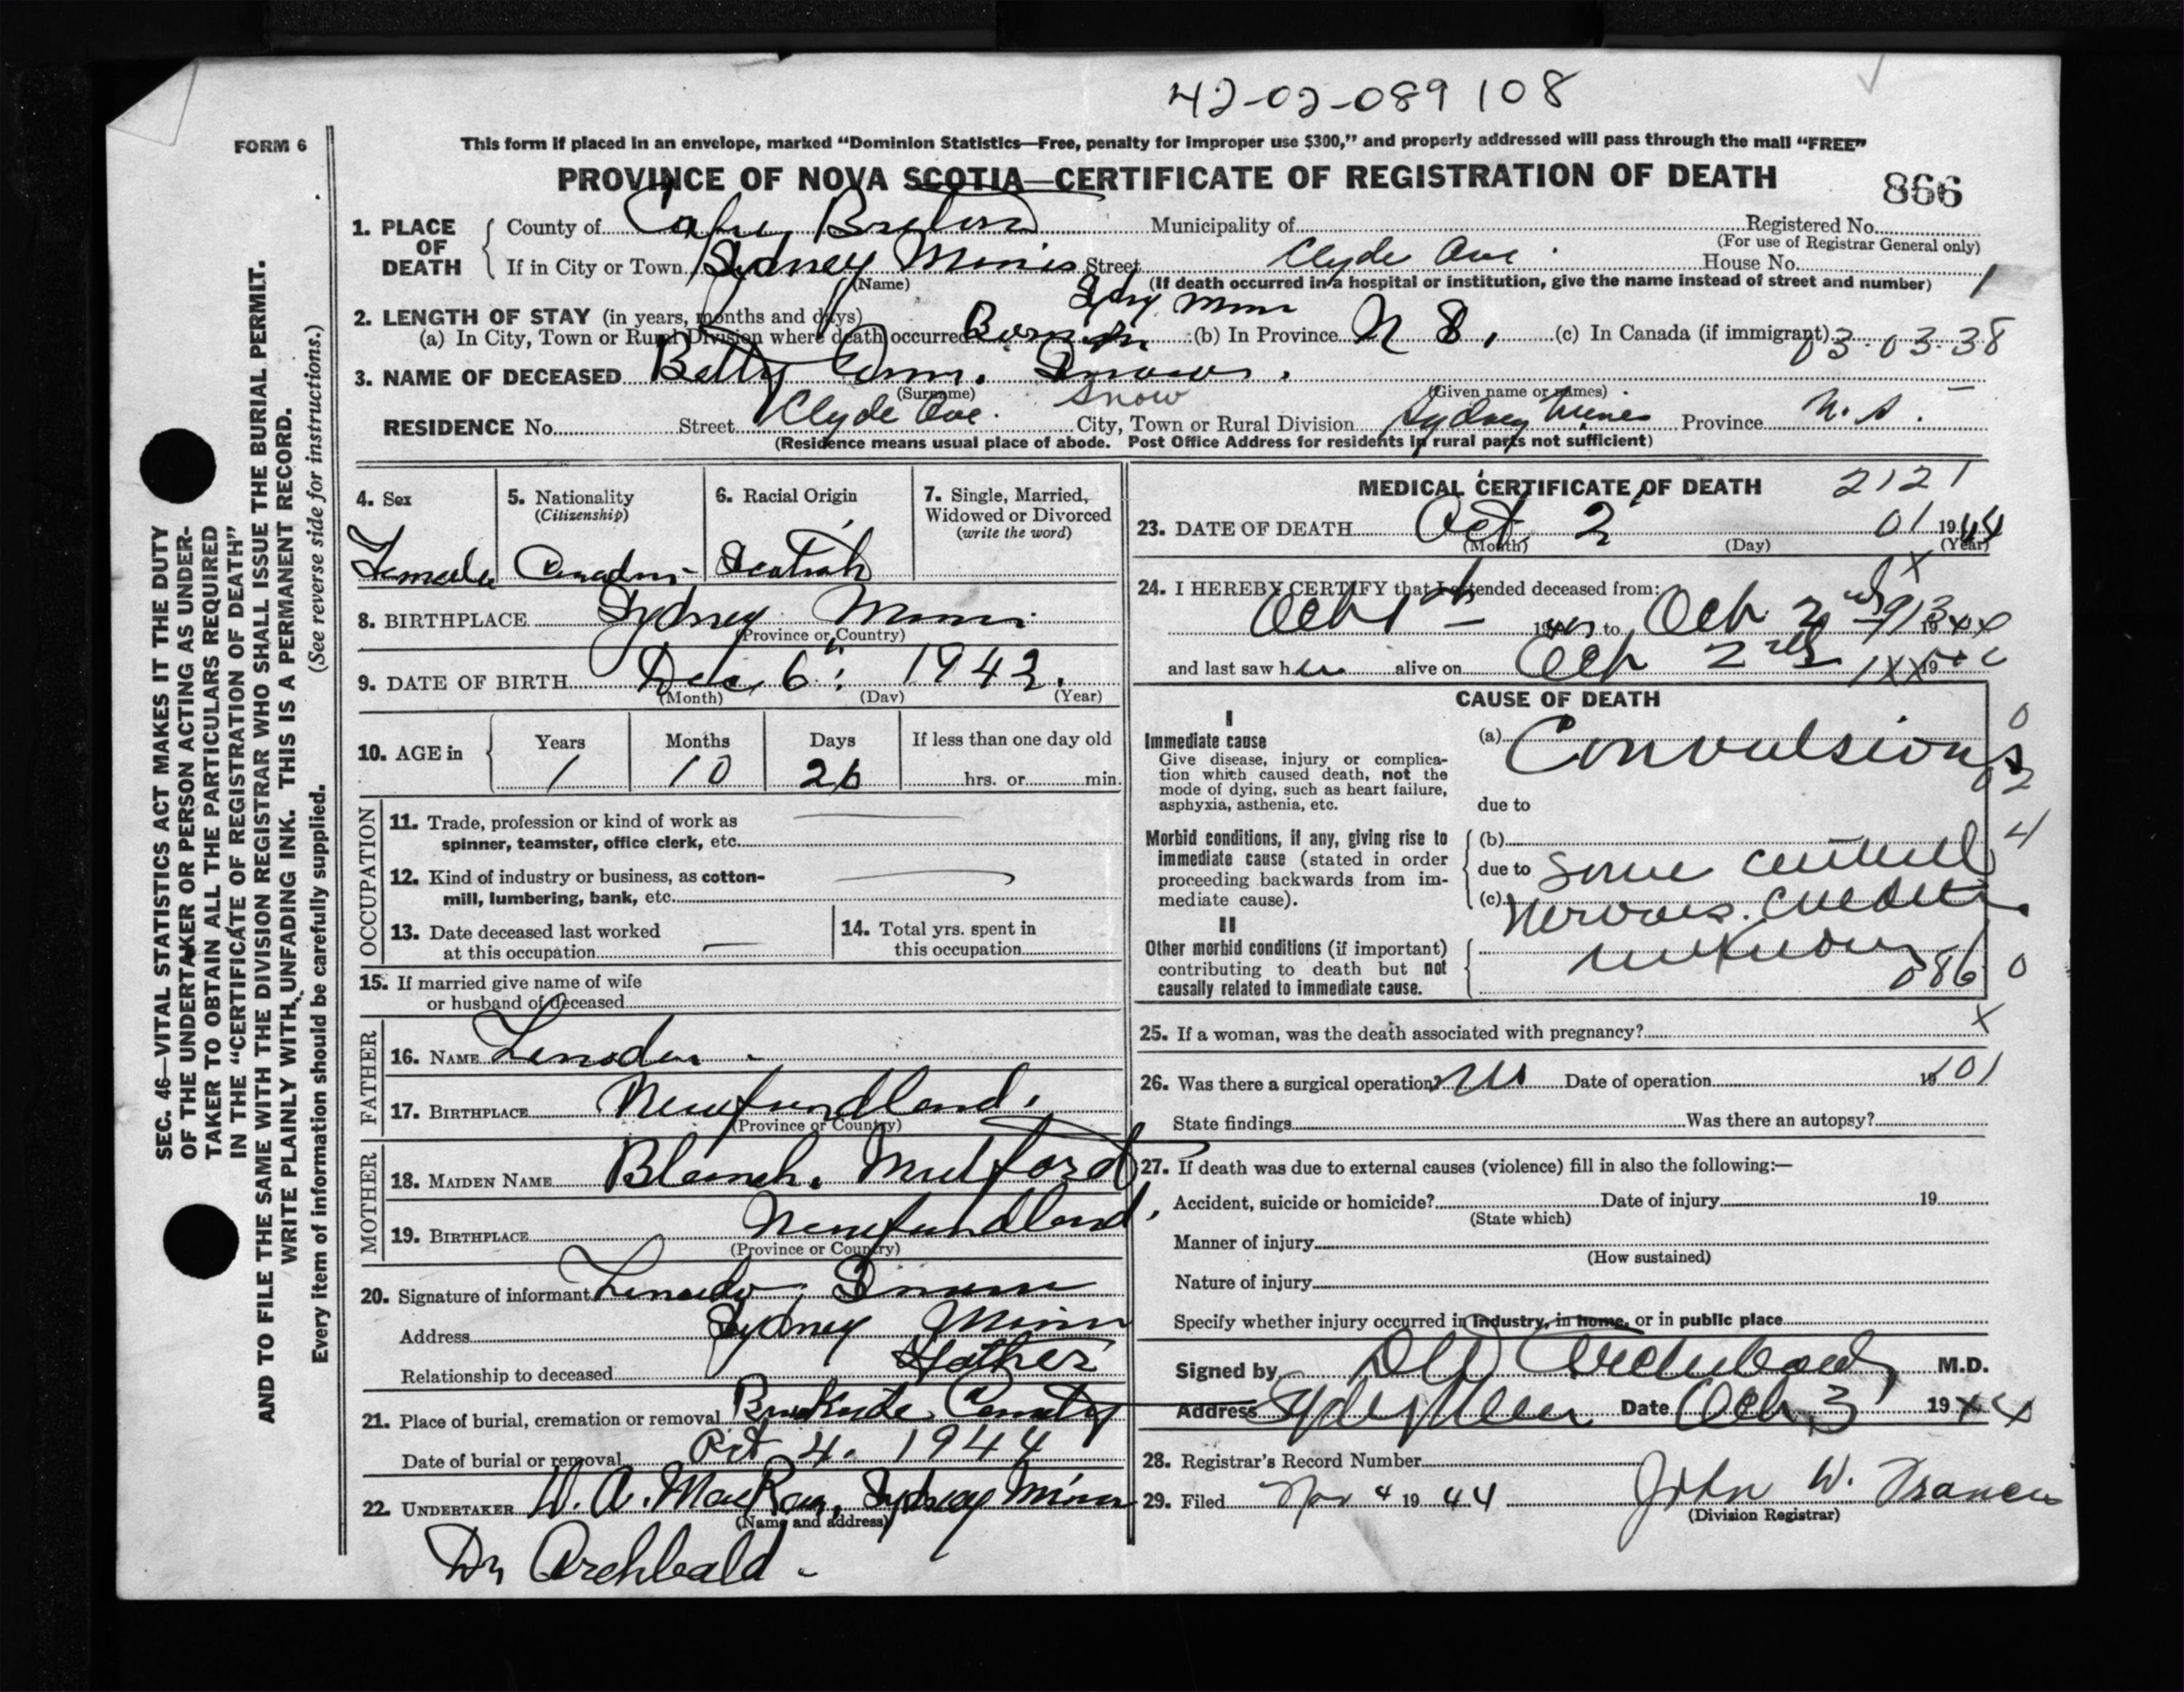 42-02-089 108
FORM 6
This form if placed in an envelope, marked “Dominion Statistics—Free, penalty for improper use $300,” and properly addressed will pass through the mail “FREE”
PROVINCE OF NOVA SCOTIA—CERTIFICATE OF REGISTRATION OF DEATH
866
1. PLACE OF DEATH
County of Cape Breton Municipality of Registered No.
(For use of Registrar General only)
If in City or Town Sydney Mines Street Clyde Ave. House No.
(Name) (If death occurred in a hospital or institution, give the name instead of street and number) 1
2. LENGTH OF STAY (in years, months and days) Sdny Mines
(a) In City, Town or Rural Division where death occurred Born in (b) In Province N S. (c) In Canada (if immigrant) 03-03-38
3. NAME OF DECEASED Betty Ann. Snow.
(Surname) Snow (Given name or names)
RESIDENCE No. Street Clyde Ave. City, Town or Rural Division Sydney Mines Province N.S.
(Residence means usual place of abode. Post Office Address for residents in rural parts not sufficient)
4. Sex
Female
5. Nationality
(Citizenship)
Canadian
6. Racial Origin
Scotish
7. Single, Married, Widowed or Divorced
(write the word)
8. BIRTHPLACE Sydney Mines
(Province or Country)
9. DATE OF BIRTH Dec 6", 1942.
(Month) (Day) (Year)
10. AGE in
Years Months Days If less than one day old
1 10 26 hrs. or min.
OCCUPATION
11. Trade, profession or kind of work as
spinner, teamster, office clerk, etc.
12. Kind of industry or business, as cotton-
mill, lumbering, bank, etc.
13. Date deceased last worked
at this occupation
14. Total yrs. spent in
this occupation
15. If married give name of wife
or husband of deceased
FATHER
16. NAME
17. BIRTHPLACE Newfundland.
(Province or Country)
MOTHER
18. MAIDEN NAME Blanch. Mulford
19. BIRTHPLACE Newfundland.
(Province or Country)
20. Signature of informant Snow
Address Sydney Mines
Relationship to deceased Father
21. Place of burial, cremation or removal Brookside Cemetry
Date of burial or removal Oct 4. 1944
22. UNDERTAKER W. A. MacRae, Sydney Mines
(Name and address)
Dr Archbald -
MEDICAL CERTIFICATE OF DEATH 2121
23. DATE OF DEATH Oct 2 01 1944
(Month) (Day) (Year)
24. I HEREBY CERTIFY that I attended deceased from: X
Oct 1st 19 to Oct 2nd 1944
and last saw her alive on Oct 2nd 19
CAUSE OF DEATH
I
Immediate cause
Give disease, injury or complica-
tion which caused death, not the
mode of dying, such as heart failure,
asphyxia, asthenia, etc.
(a) Convulsions
due to
0
02
4
Morbid conditions, if any, giving rise to
immediate cause (stated in order
proceeding backwards from im-
mediate cause).
(b)
due to some
(c) Nervous
II
Other morbid conditions (if important)
contributing to death but not
causally related to immediate cause.
unknown
086 0
25. If a woman, was the death associated with pregnancy? X
26. Was there a surgical operation? No Date of operation 19 101
State findings Was there an autopsy?
27. If death was due to external causes (violence) fill in also the following:—
Accident, suicide or homicide? Date of injury 19
(State which)
Manner of injury
(How sustained)
Nature of injury
Specify whether injury occurred in industry, in home, or in public place
Signed by Archibald, M.D.
Address Date Oct 3 1944
28. Registrar's Record Number
29. Filed Nov 4 1944 John W. Francis
(Division Registrar)
SEC. 46—VITAL STATISTICS ACT MAKES IT THE DUTY
OF THE UNDERTAKER OR PERSON ACTING AS UNDER-
TAKER TO OBTAIN ALL THE PARTICULARS REQUIRED
IN THE “CERTIFICATE OF REGISTRATION OF DEATH”
AND TO FILE THE SAME WITH THE DIVISION REGISTRAR WHO SHALL ISSUE THE BURIAL PERMIT.
WRITE PLAINLY WITH UNFADING INK. THIS IS A PERMANENT RECORD.
Every item of information should be carefully supplied. (See reverse side for instructions.)